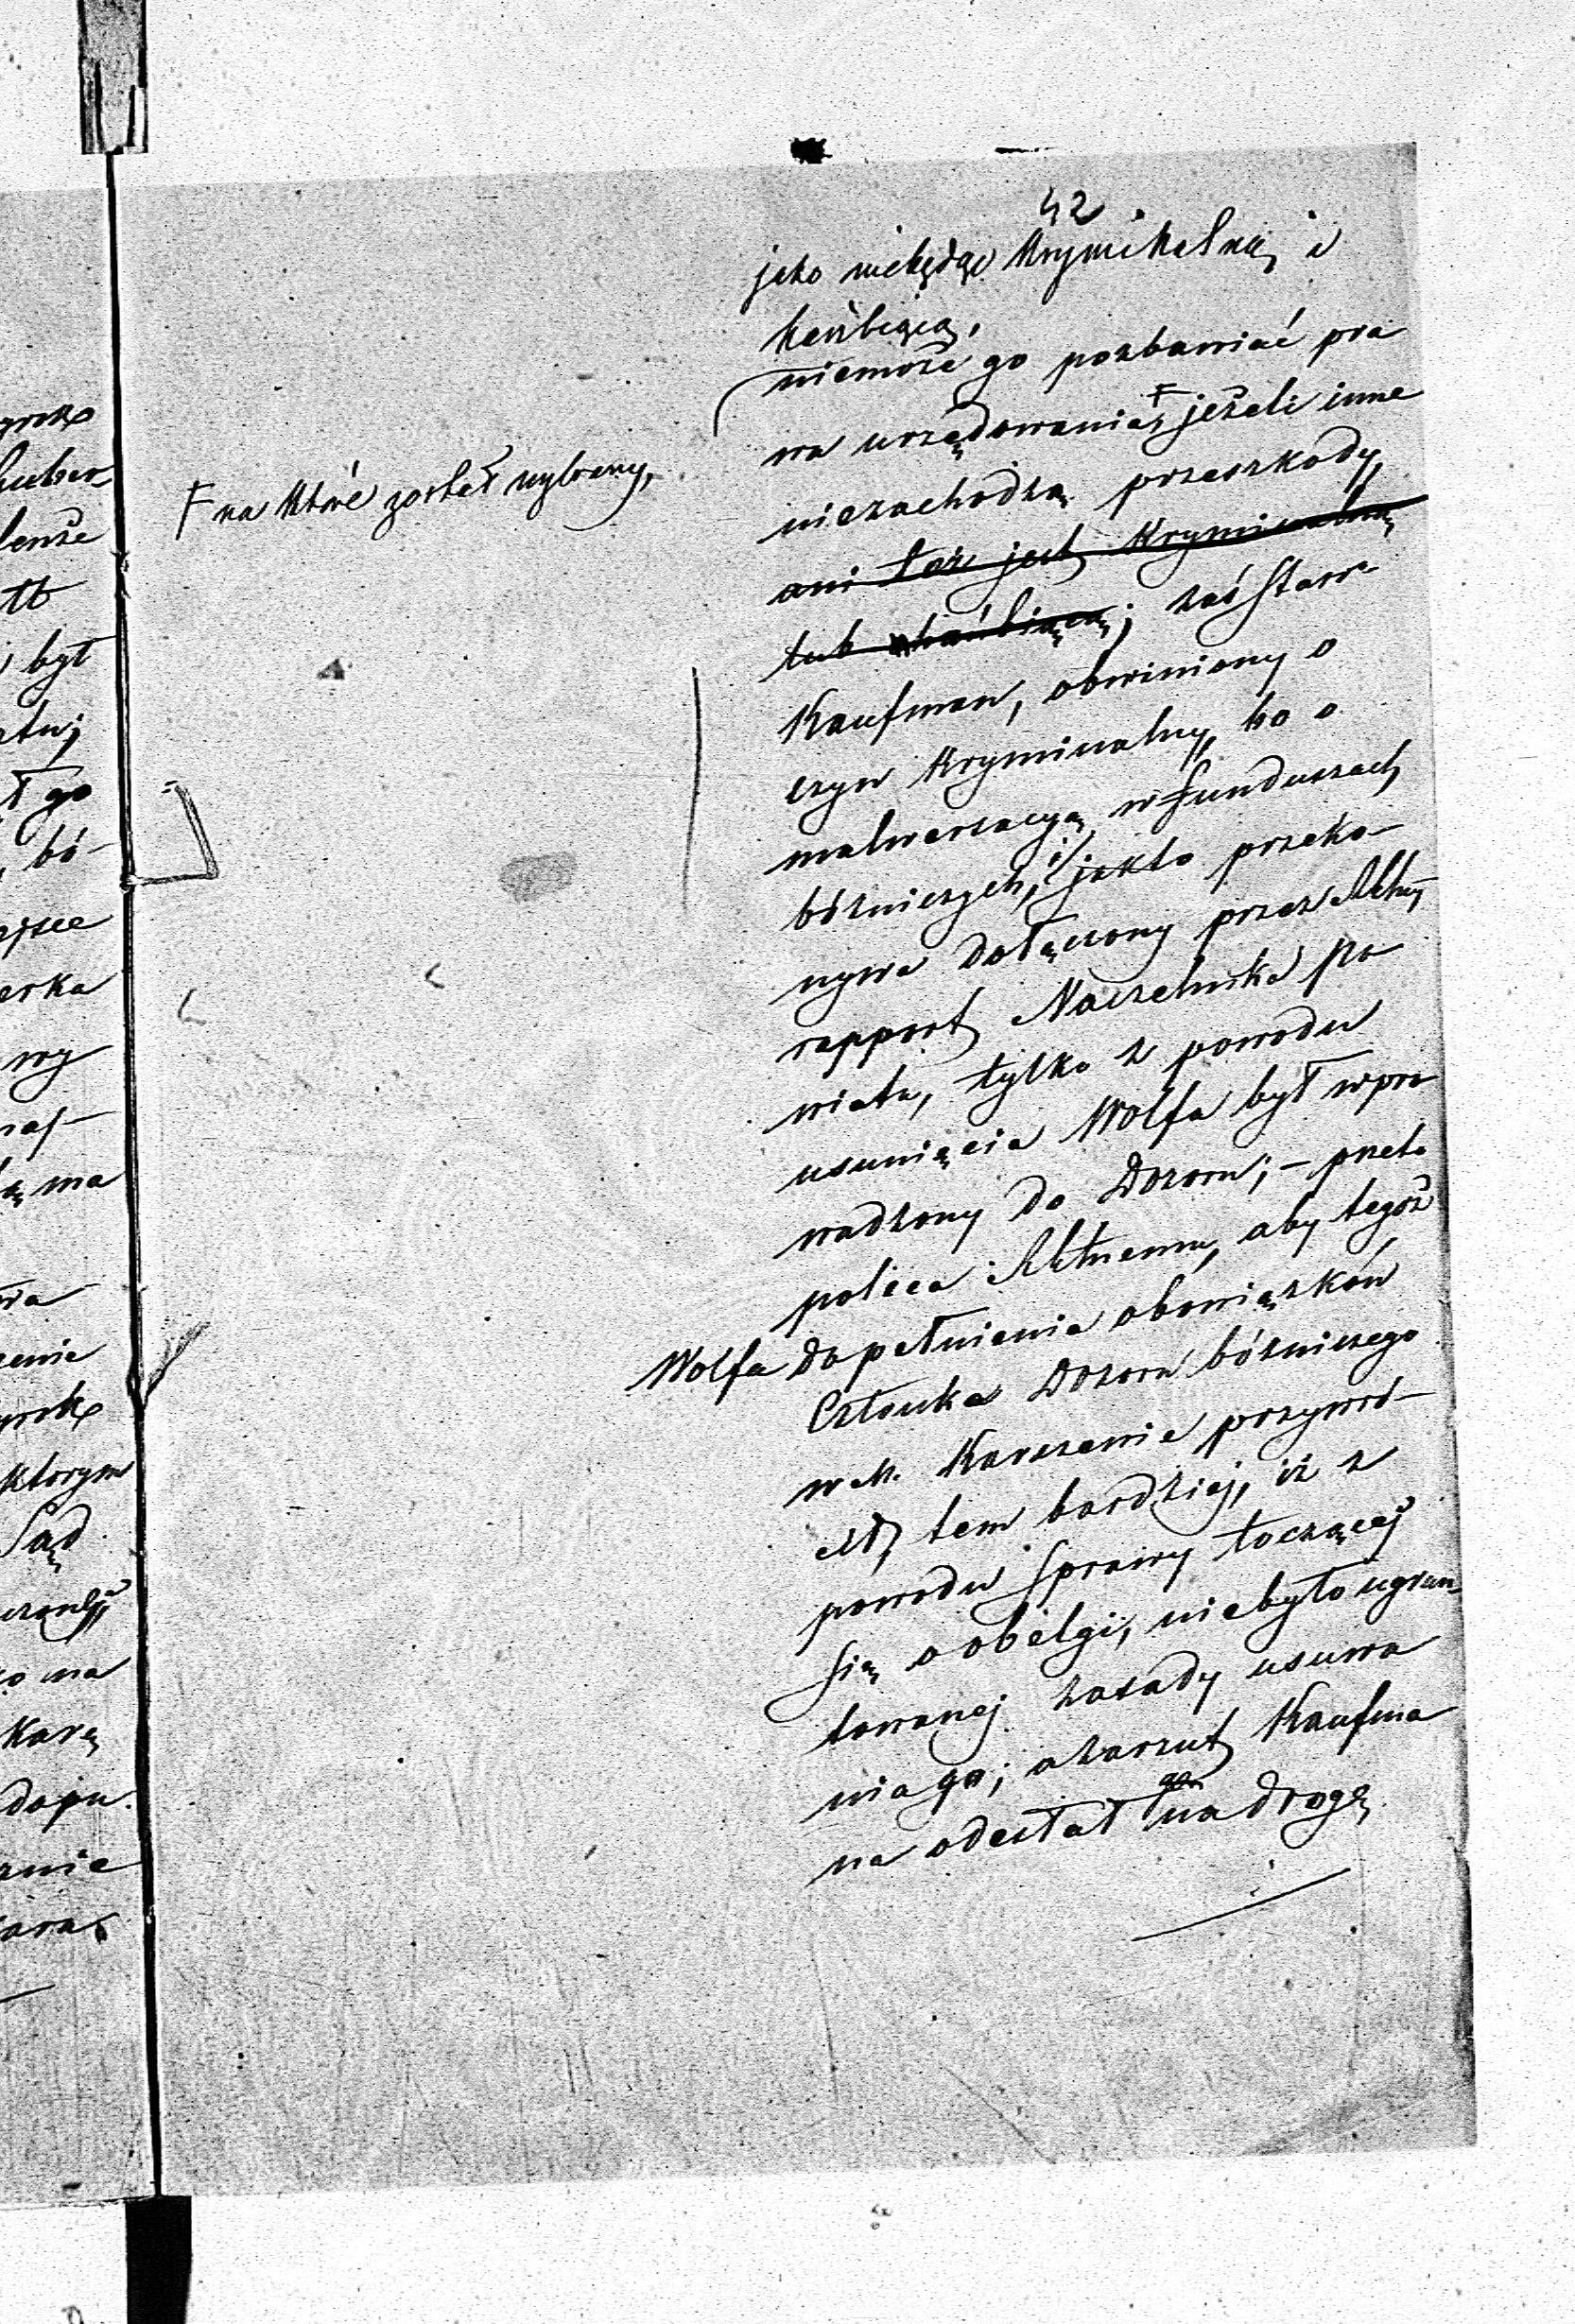 42
jako niebędąc kryminalną i
hańbiącą,
niemoże go pozbawiać pra
wa urzędowania F jeżeli inne
niezachodzą przeszkody,
ani też jest kryminalną
lub hańbiącą; zaś Star.
Kaufman, obwiniony o
czyn kryminalny, bo o
malwersacyą w funduszach
bóżniczych, i jak to przeko-
nywa dołączony przez
rapport Naczelnika po
wiatu, tylko z powodu
usunięcia Wolfa był wpro
wadzony do Dozoru; – przeto
poleca aby tegoż
Wolfa do pełnienia obowiązków
Członka Dozoru bóżniczego
w M. Karczewie przywró-
cił, tem bardziej, iż z
powodu sprawy toczącej
się o obelgi, niebyło ugrun-
towanej zasady usuwa
nia go; a zarzut Kaufma
na odesłał na drogę
F na które został wybrany,
grok
lenże
był
ł go
bó-
erka
wy
ma
zenie
którym
Sąd
na
Karę
dopu.